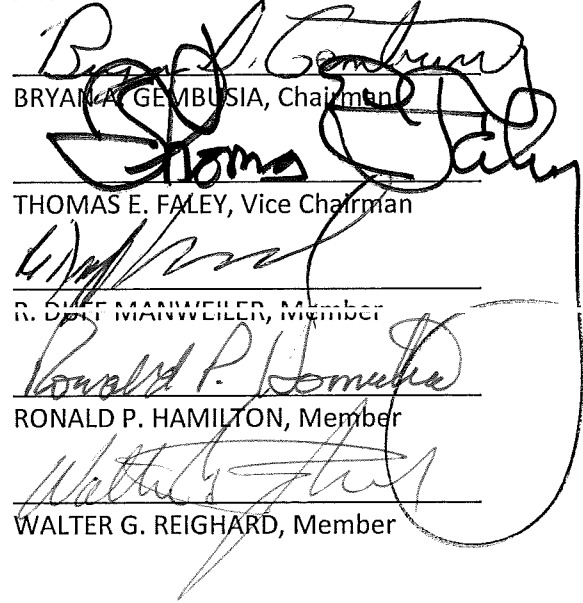 Bryan A. Gembusia
BRYAN A. GEMBUSIA, Chairman
Thomas E Faley
THOMAS E. FALEY, Vice Chairman
R. DUFF MANWEILER, Member
Ronald P. Hamilton
RONALD P. HAMILTON, Member
Walter G
WALTER G. REIGHARD, Member